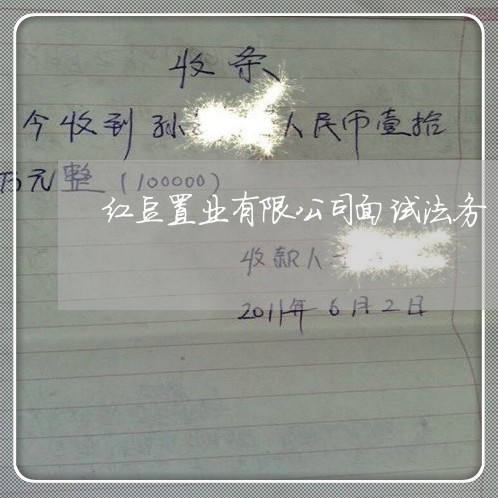 收条
今收到孙 人民币壹拾
万元整(100000)
红豆置业有限公司面试法务
收款人
2011年6月2日